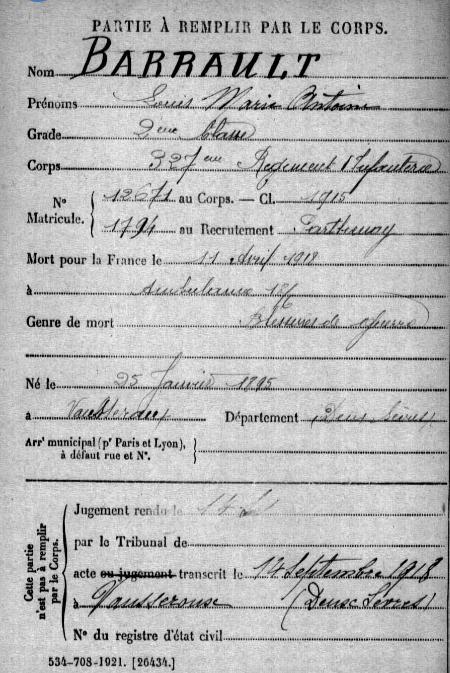 PARTIE À REMPLIR PAR LE CORPS.
Nom BARRAULT
Prénoms Louis Marie Antoine
Grade 2eme Classe
Corps 327eme Regiment d'Infanterie
N° Matricule. { 12671 au Corps. — Cl. 1915
1794 au Recrutement Parthenay
Mort pour la France le 11 Avril 1918
à Ambulance 18/6
Genre de mort Blessures de guerre
Né le 25 Janvier 1895
à Vausseroux Département Deux Sèvres
Arrt municipal (pr Paris et Lyon), à défaut rue et N°. }
Cette partie n'est pas à remplir par le Corps.
Jugement rendu le 14 S
par le Tribunal de
acte ou jugement transcrit le 14 Septembre 1918
à Vausseroux (Deux Sèvres)
N° du registre d'état civil
534-708-1921. [26434.]